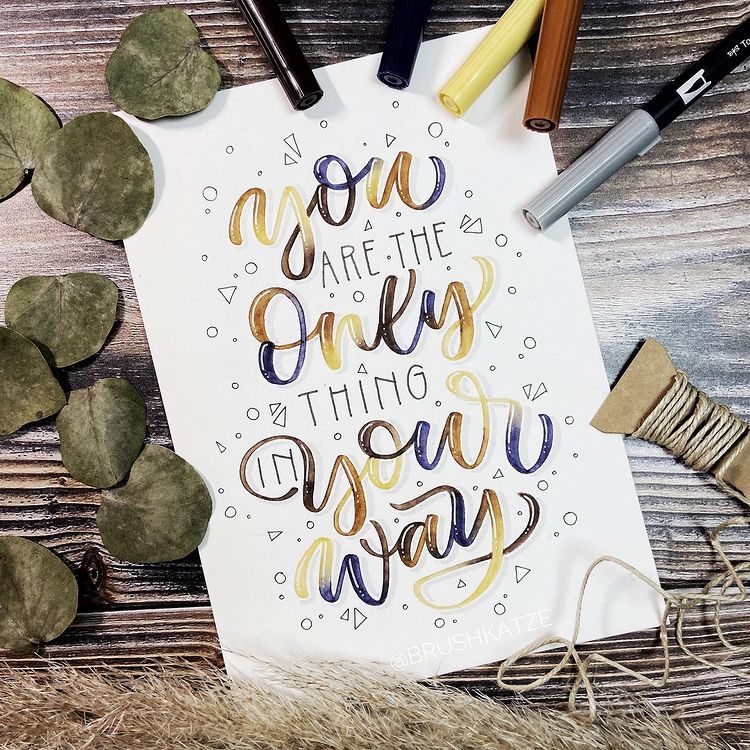 you
ARE THE
only
THING
IN your
way
@BRUSHKATZE